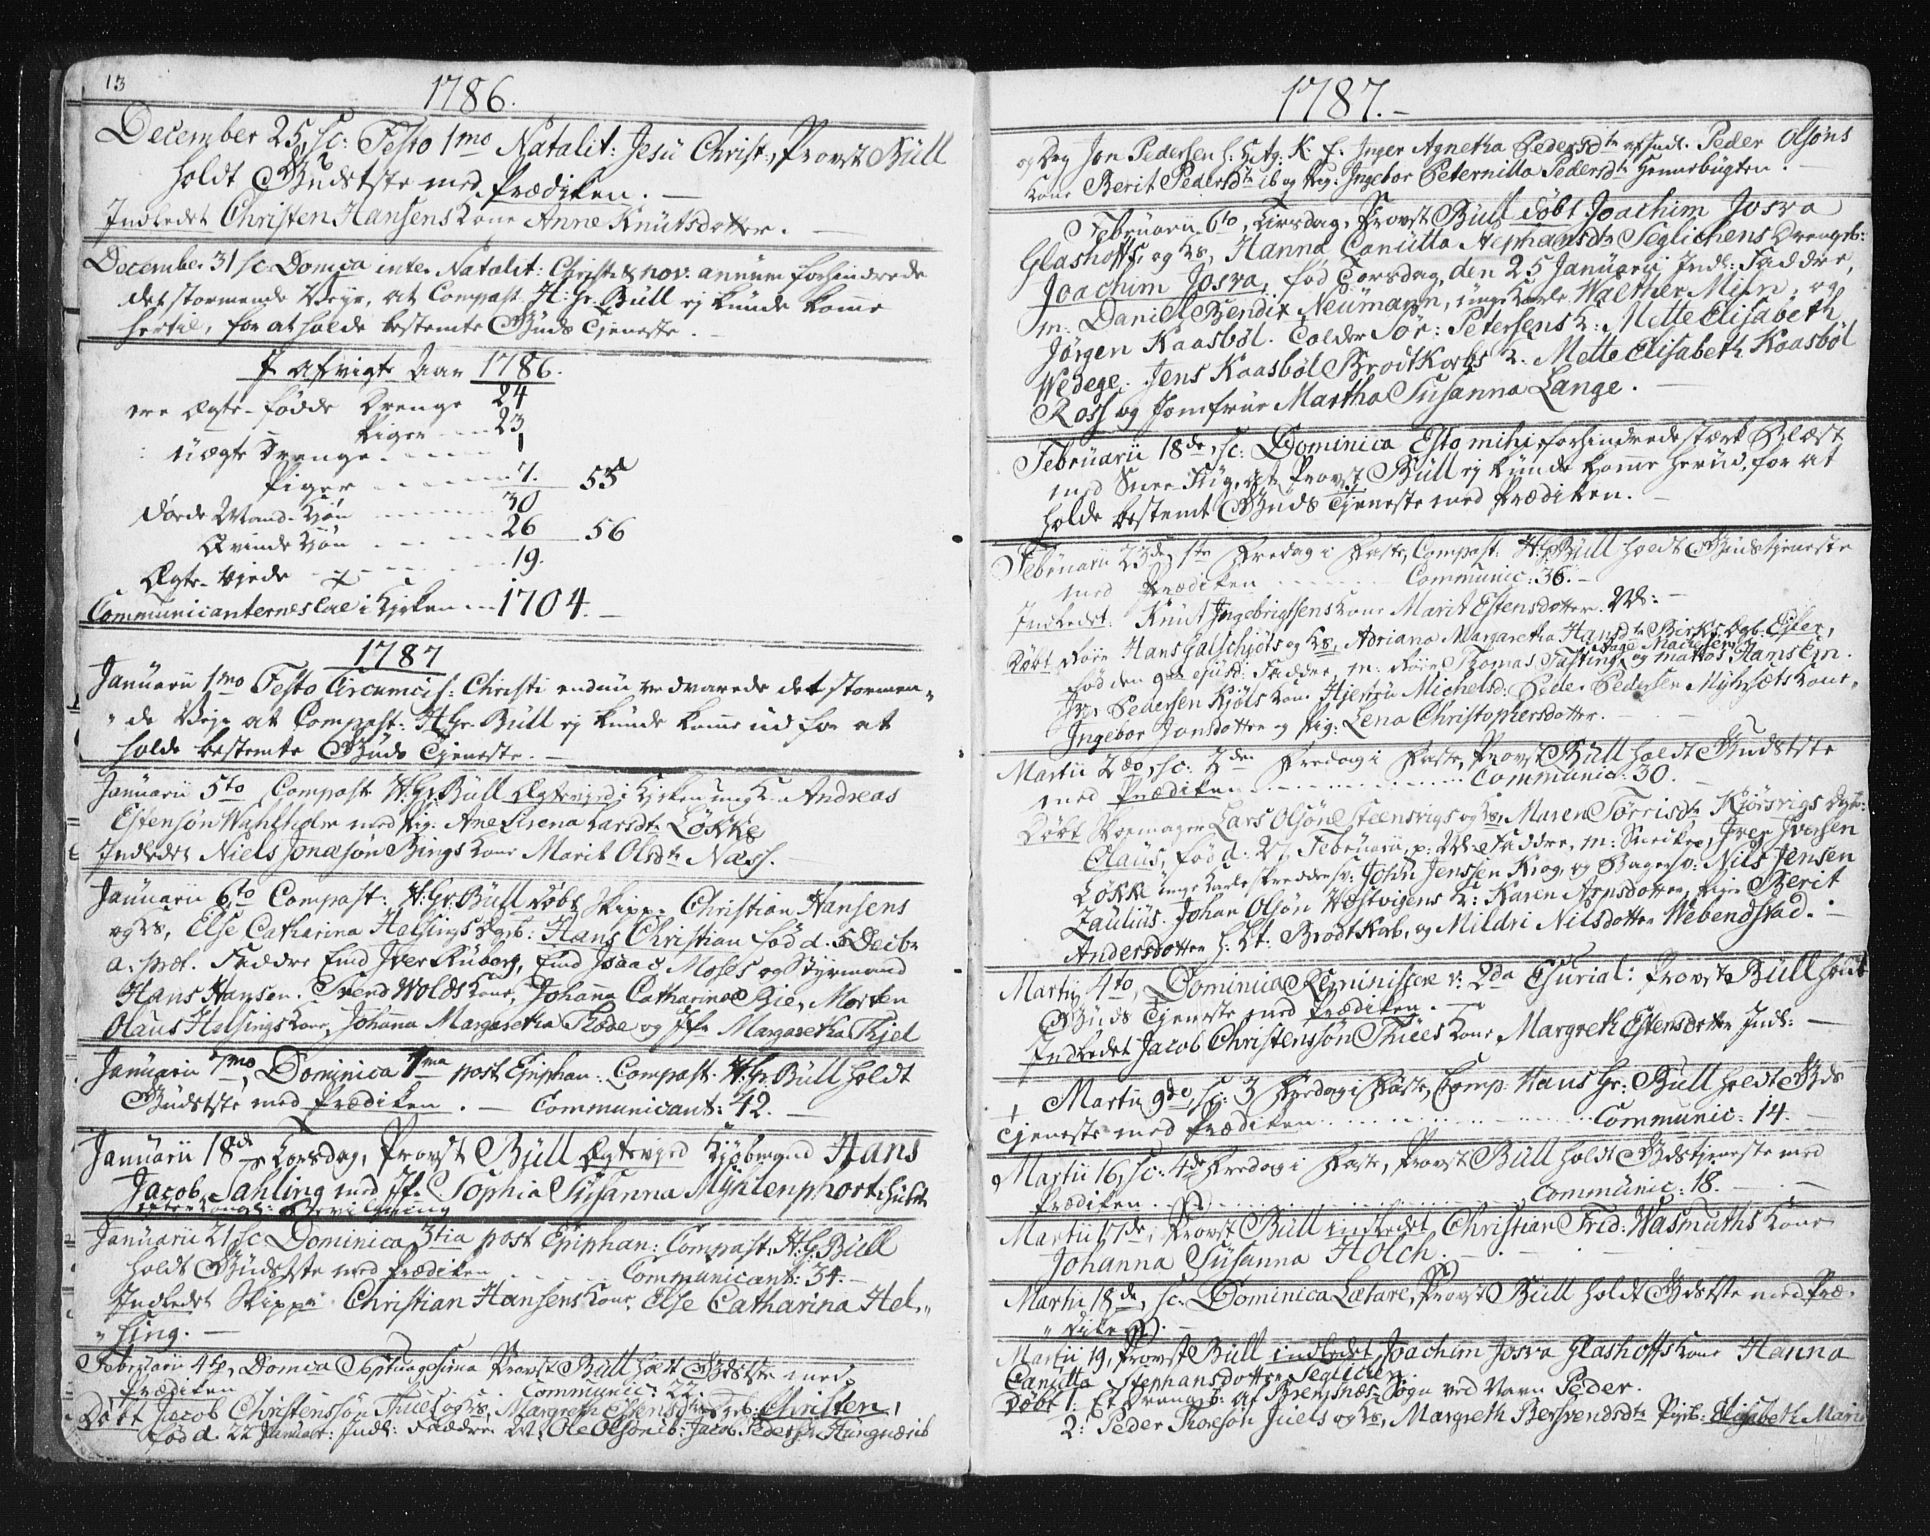 13
1786.
December 25, sc: Festo 1mo Natalit: Jesu Christ:, Provst Büll
holdt Gudstste med Prædiken. —
Indledet Christen Hansens Kone Anne Knutsdotter. —
December 31 sc Domca inter Natalit: Christi & nov: annum forhindrede
det stormende Veyr, at Compast: H: Gr: Büll ej kunde komme
hertil, for at holde bestemte Guds Tjeneste. —
I afvigte Aar 1786.
ere Ægte-fødde Drenge 24
Piger 23
uægte Drenge 1
Piger 7. 55
døde Mand-Kjøn 30
Qvinde Kjøn 26 56
Ægte-viede 19.
Communicanternes Tal i Kirken 1704. —
1787
Januarii 1mo Festo Circumcis: Christi endnu vedvarede det stormen„
„de Vejr at Compast: H Gr: Büll ej kunde komme ud for at
holde bestemte Guds Tjeneste. —
Januarii 5to Compast H: Gr: Büll Ægteviede i Kirken ungk. Andreas
Estensøn Wahlholm med Pig: Ane Sirena Larsdtr Løkke
Indledet Niels Jonasøn Bings Kone Marit Olsdtr Næss.
Januarii 6to Compast: H: Gr: Büll døbt Skipp: Christian Hansens
og Hs, Else Catharina Helsings Drgb: Hans Christian fød d. 5 Decbr
a: præt. Faddre Emd Iver Ruberg, Emd Isaac Moses og Styrmand
Hans Hansen. Svend Wolds Kone, Johanna Catharina Bie, Morten
Olaus Helsings Kone, Johanna Margaretha Thode og Jfr Margaretha Thjel
Januarii 7mo, Dominica 1ma post Epiphan: Compast. H: Gr: Büll holdt
Gudstste med Prædiken. — Communicant: 42. —
Januarii 18de Torsdag, Provst Büll Ægteviede Kjøbmand Hans
Jacob Sahling med Jfr. C. Sophia Susanna Mühlenphort i Huset
efter Kongl: Bevilgning
Januarii 21 sc Dominica 3tia post Epiphan: Compast: H: G: Büll
holdt Gudstste med Prædiken Communicant: 34. —
Indledet Skippr Christian Hansens Kone, Else Catharina Hel„
„sing. —
Februarii 4to, Domca Septuagesima Provst Büll holdt Gudstste med
Prædiken Communic: 22.
Døbt Jacob Christensøn Thiels og Hs, Margreth Estensdtr Drgb: Christen,
fød d. 22 Januar: Indl: Faddre M: Ole Olson ib: Jacob Pedersen
1787. —
og Drg Jon Pedersen Inger Agnetha Pedersdtr afsindl. Peder Olsøns
Kone Berit Pedersdtr ib og Pig: Ingebor Peternilla Pedersdtr Hennebugten.
Februarii 6to, Tirsdag, Provst Büll døbt Joachim Josva
Glashoffs, og Hs, Hanna Canutta Stephansdtr Seglichens Drengeb:
Joachim Josva, fød Torsdag, den 25 Januarii, Indl: Faddre,
m: Daniel Bendix Neumann, unge Karle, Walther Miln, og
Jørgen Kaasbøl. Tolder Sør: Petersens K: Mette Elisabeth
Wedege. Jens Kaasbøl Brodtkorbs K. Mette Elisabeth Kaasbøl
Ross og Jomfrue Martha Susanna Lange. —
Februarii 18de, sc: Dominica Esto mihi, forhindrede stærk Blæst
med Snee Fug, at Provst Büll ej kunde komme herud, for at
holde bestemt Guds Tjeneste med Prædiken. —
Februarii 23de, 1te Fredag i Faste, Compast: H: G: Büll holdt Gudstjeneste
med Prædiken Communic: 36. —
Indledet: Knut Ingebrigtsens Kone Marit Estensdotter. —
Døbt Hans Galschjøts og Hs, Adriana Margaretha Hansdtr Birks Dgb: Ester,
fød den 9de ejusd: Faddre, m. Thomas Fasting, Aage Madtsen og Mathias Hanssen.
Iver Pedersen Kjøls Kone Michelsd: Peder Pedersen Kone,
Ingebor Jonsdotter og Pig: Lena Christophersdotter. —
Martii 2do, sc: 2den Fredag i Faste, Provst Büll holdt Gudstste
med Prædiken Communic: 30. —
Døbt Skomager Lars Olsøn Steensvigs og Hs, Maren Torrisdtr Kjørsvigs Dgb:
Olaus, fød d: 27 Februarii, Faddre, m: Snedker, Iver Iversen
Løkke unge Karle skreddersv: John Jenssen Krog, og Bagersv: Nils Jensen
Zaulius. Johan Olsøn Westvigens K: Karen Arnsdotter, Pige Berit
Andersdotter h: Brodtkorb, og Mildri Nilsdotter Webendstad. —
Martii 4to, Dominica Reminiscere v: 2da Esurial: Provst Büll holdt
Guds Tjeneste med Prædiken. —
Indledet Jacob Christenssøn Thiels Kone Margreth Estensdotter Indl: —
Martii 9de, sc: 3 Fredag i Faste, Comp: Hans Gr: Büll holdt Gds
Tjeneste med Prædiken Communic: 14. —
Martii 16, sc: 4de Fredag i Faste, Provst Büll holdt Gdstjeneste med
Prædiken Communic: 18. —
Martii 17de, Provst Büll indledet Christian Frid: Wasmuths Kone
Johanna Susanna Holch. —
Martii 18de, sc: Dominica Lætare, Provst Büll holdt Gdstste med Præ„
„diken. —
Martii 19, Provst Büll indledet, Joachim Josva Glashoffs Kone Hanna
Canutta Stephansdotter Seglichen.
Døbt 1. Et Drengeb: af Brensnæs Sogn ved Navn Peder.
2: Peder Thoreson Juels og Hs, Margreth Bersvendsdtr Pigeb: Elisabeth Maria